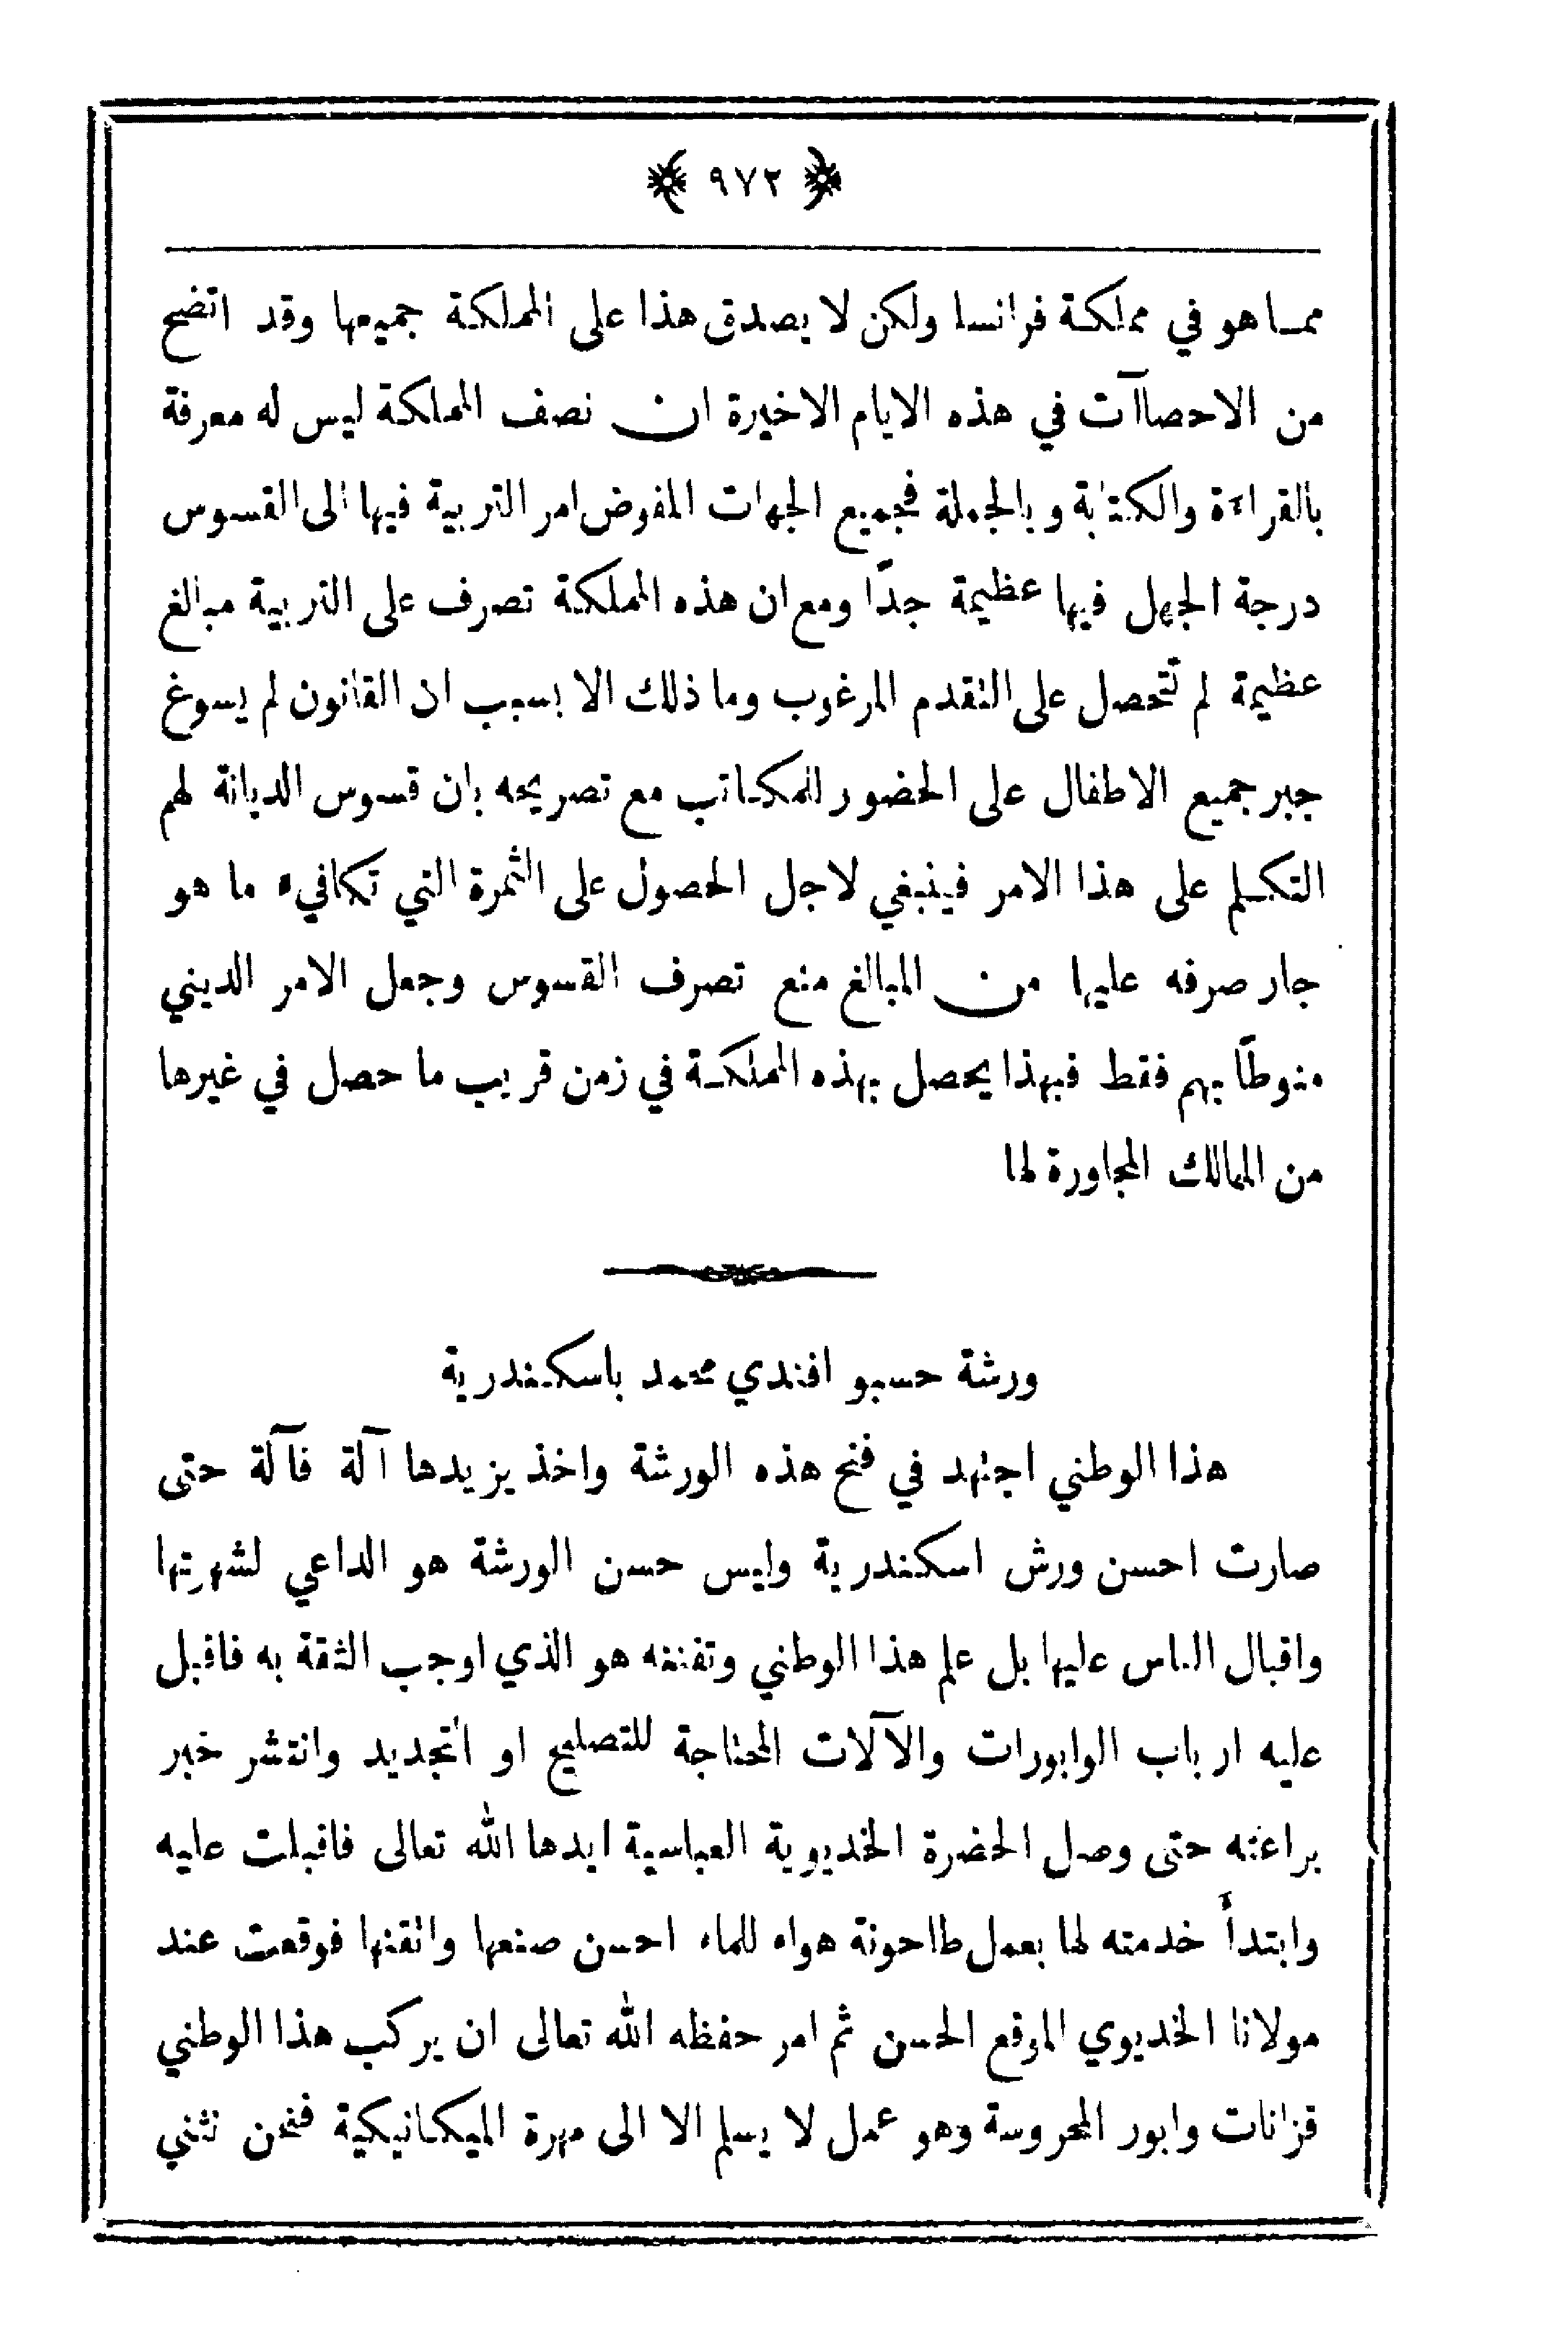 ﴿ ٩٧٢ ﴾
ممـا هو في مملكـة فرانسا ولكن لا يصدق هذا على المملكة جميعها وقد اتضح
من الاحصاآت في هذه الايام الاخيرة ان نصف المملكة ليس له معرفة
بالقراءة والكتابة وبالجملة فجميع الجهات المفوض امر التربية فيها الى القسوس
درجة الجهل فيها عظيمة جدًا ومع ان هذه المملكة تصرف على التربية مبالغ
عظيمة لم تتحصل على التقدم المرغوب وما ذلك الا بسبب ان القانون لم يسوغ
جبر جميع الاطفال على الحضور للمكاتب مع تصريحه بان قسوس الديانة لهم
التكـلم على هذا الامر فينبغي لاجل الحصول على الثمرة التي تكافيء ما هو
جار صرفه عليها من المبالغ منع تصرف القسوس وجعل الامر الديني
منوطًا بهم فقط فبهذا يحصل بهذه المملكـة في زمن قريب ما حصل في غيرها
من الممالك المجاورة لها
ورشة حسبو افندي محمد باسكندرية
هذا الوطني اجتهد في فتح هذه الورشة واخذ يزيدها آلة فآلة حتى
صارت احسن ورش اسكندرية وليس حسن الورشة هو الداعي لشهرتها
واقبال الناس عليها بل علم هذا الوطني وتفننه هو الذي اوجب الثقة به فاقبل
عليه ارباب الوابورات والآلات المحتاجة للتصليح او التجديد وانتشر خبر
براعته حتى وصل الحضرة الخديوية العباسية ايدها الله تعالى فاقبلت عليه
وابتدأ خدمته لها بعمل طاحونة هواء للماء احسن صنعها واتقنها فوقعت عند
مولانا الخديوي الموقع الحسن ثم امر حفظه الله تعالى ان يركب هذا الوطني
قزانات وابور المحروسة وهو عمل لا يسلم الا الى مهرة الميكانيكية فنحن نثني